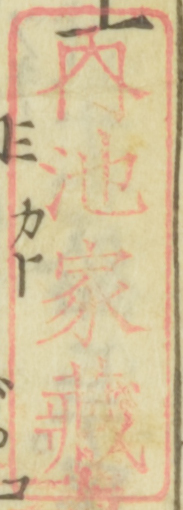 内池家藏